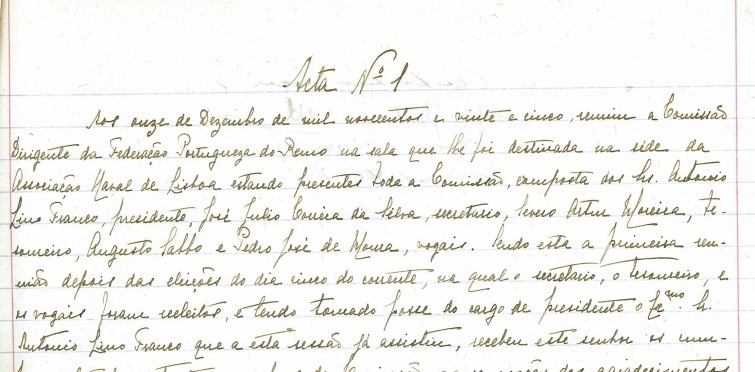 Acta Nº 1
Aos onze de Dezembro de mil novecentos e vinte e cinco, reuniu a Comissão
Dirigente da Federação Portugueza do Remo na sala que lhe foi destinada na séde da
Associação Naval de Lisboa estando presentes toda a Comissão, composta dos Srs. Antonio
Lino Franco, presidente, José Julio Correia da Silva, secretario, Severo Artur Moreira, te-
soureiro, Augusto Sabbo e Pedro José de Moura, vogais. Sendo esta a primeira reu-
nião depois das eleições do dia cinco do corrente, na qual o secretario, o tesoureiro, e
os vogais foram reeleitos, e tendo tomado posse do cargo de presidente o Sr.
Antonio Lino Franco que a esta sessão já assistiu, recebeu este senhor os cum-
agradecimentos